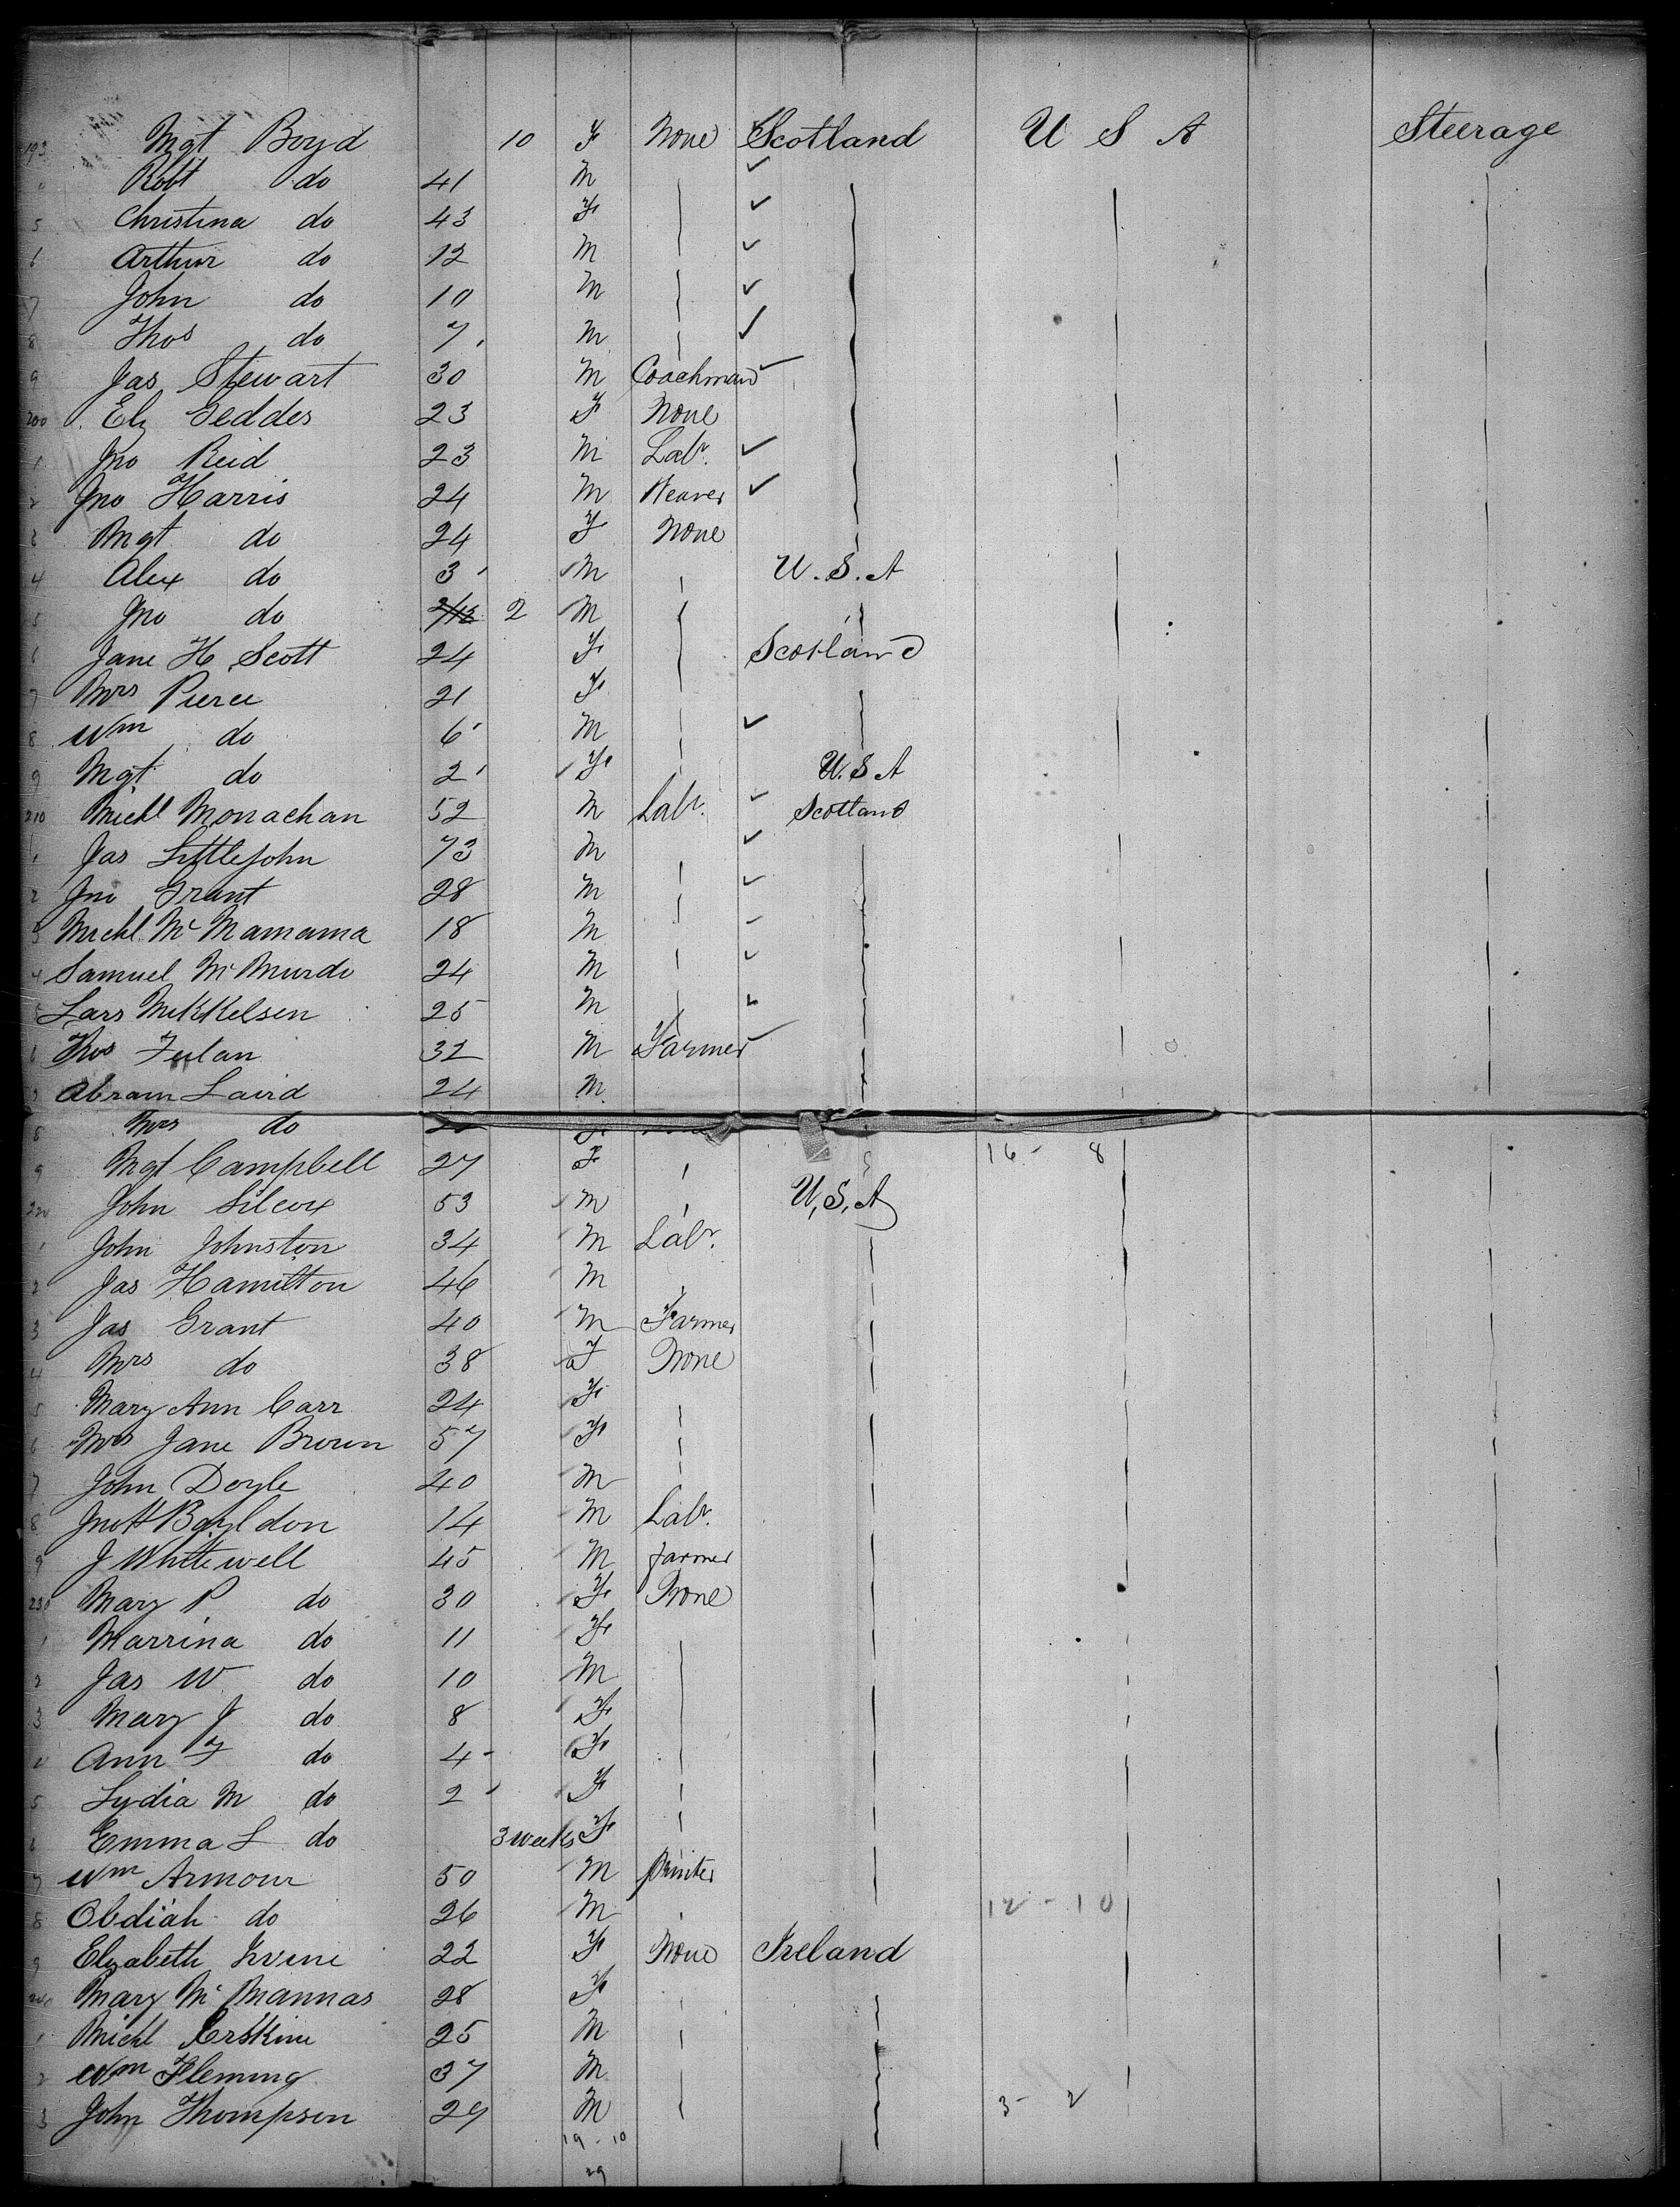 193 Mgt Boyd 10 F None Scotland U S A Steerage
Robt do 41 M
5 Christina do 43 F
6 Arthur do 12 M
7 John do 10 M
8 Thos do 7 M
9 Jas Stewart 30 M Coachman
200 Elz Geddes 23 F None
1 Jno Reid 23 M Labr.
2 Jno Harris 24 M Weaver
3 Mgt do 24 F None
4 Alex do 3 M U.S.A
5 Jno do 2/12 2 M
6 Jane H Scott 24 F Scotland
7 Mrs Pierce 21 F
8 Wm do 6 M
9 Mgt do 2 F U.S.A
210 Michl Monachan 52 M Labr. Scotland
1 Jas Littlejohn 73 M
2 Jno Grant 28 M
3 Michl Mc Mamama 18 M
4 Samuel Mc Murdo 24 M
5 Lars Mekkelsen 25 M
6 Thos 32 M Farmer
7 Abram Laird 24 M
8 Mrs do F
9 Mgt Campbell 27 F 16 - 8
220 John Silcox 53 M U.S.A
1 John Johnston 34 M Labr.
2 Jas Hamilton 46 M
3 Jas Grant 40 M Farmer
4 Mrs do 38 F None
5 Mary Ann Carr 24 F
6 Mrs Jane Brown 57 F
7 John Doyle 40 M
8 Jno H Bayldon 14 M Labr.
9 J Whitewell 45 M farmer
230 Mary P do 30 F None
1 Marrina do 11 F
2 Jas W do 10 M
3 Mary J do 8 F
4 Ann F do 4 F
5 Lydia M do 2 F
6 Emma L do 3 weeks F
7 Wm Armour 50 M Printer
8 Obdiah do 26 M 12 - 10
9 Elizabeth Irvine 22 F None Ireland
240 Mary Mc Mannas 28 F
1 Michl Erskine 25 M
2 Wm Fleming 37 M
3 John Thompson 29 M 3 - 2
19 - 10
29